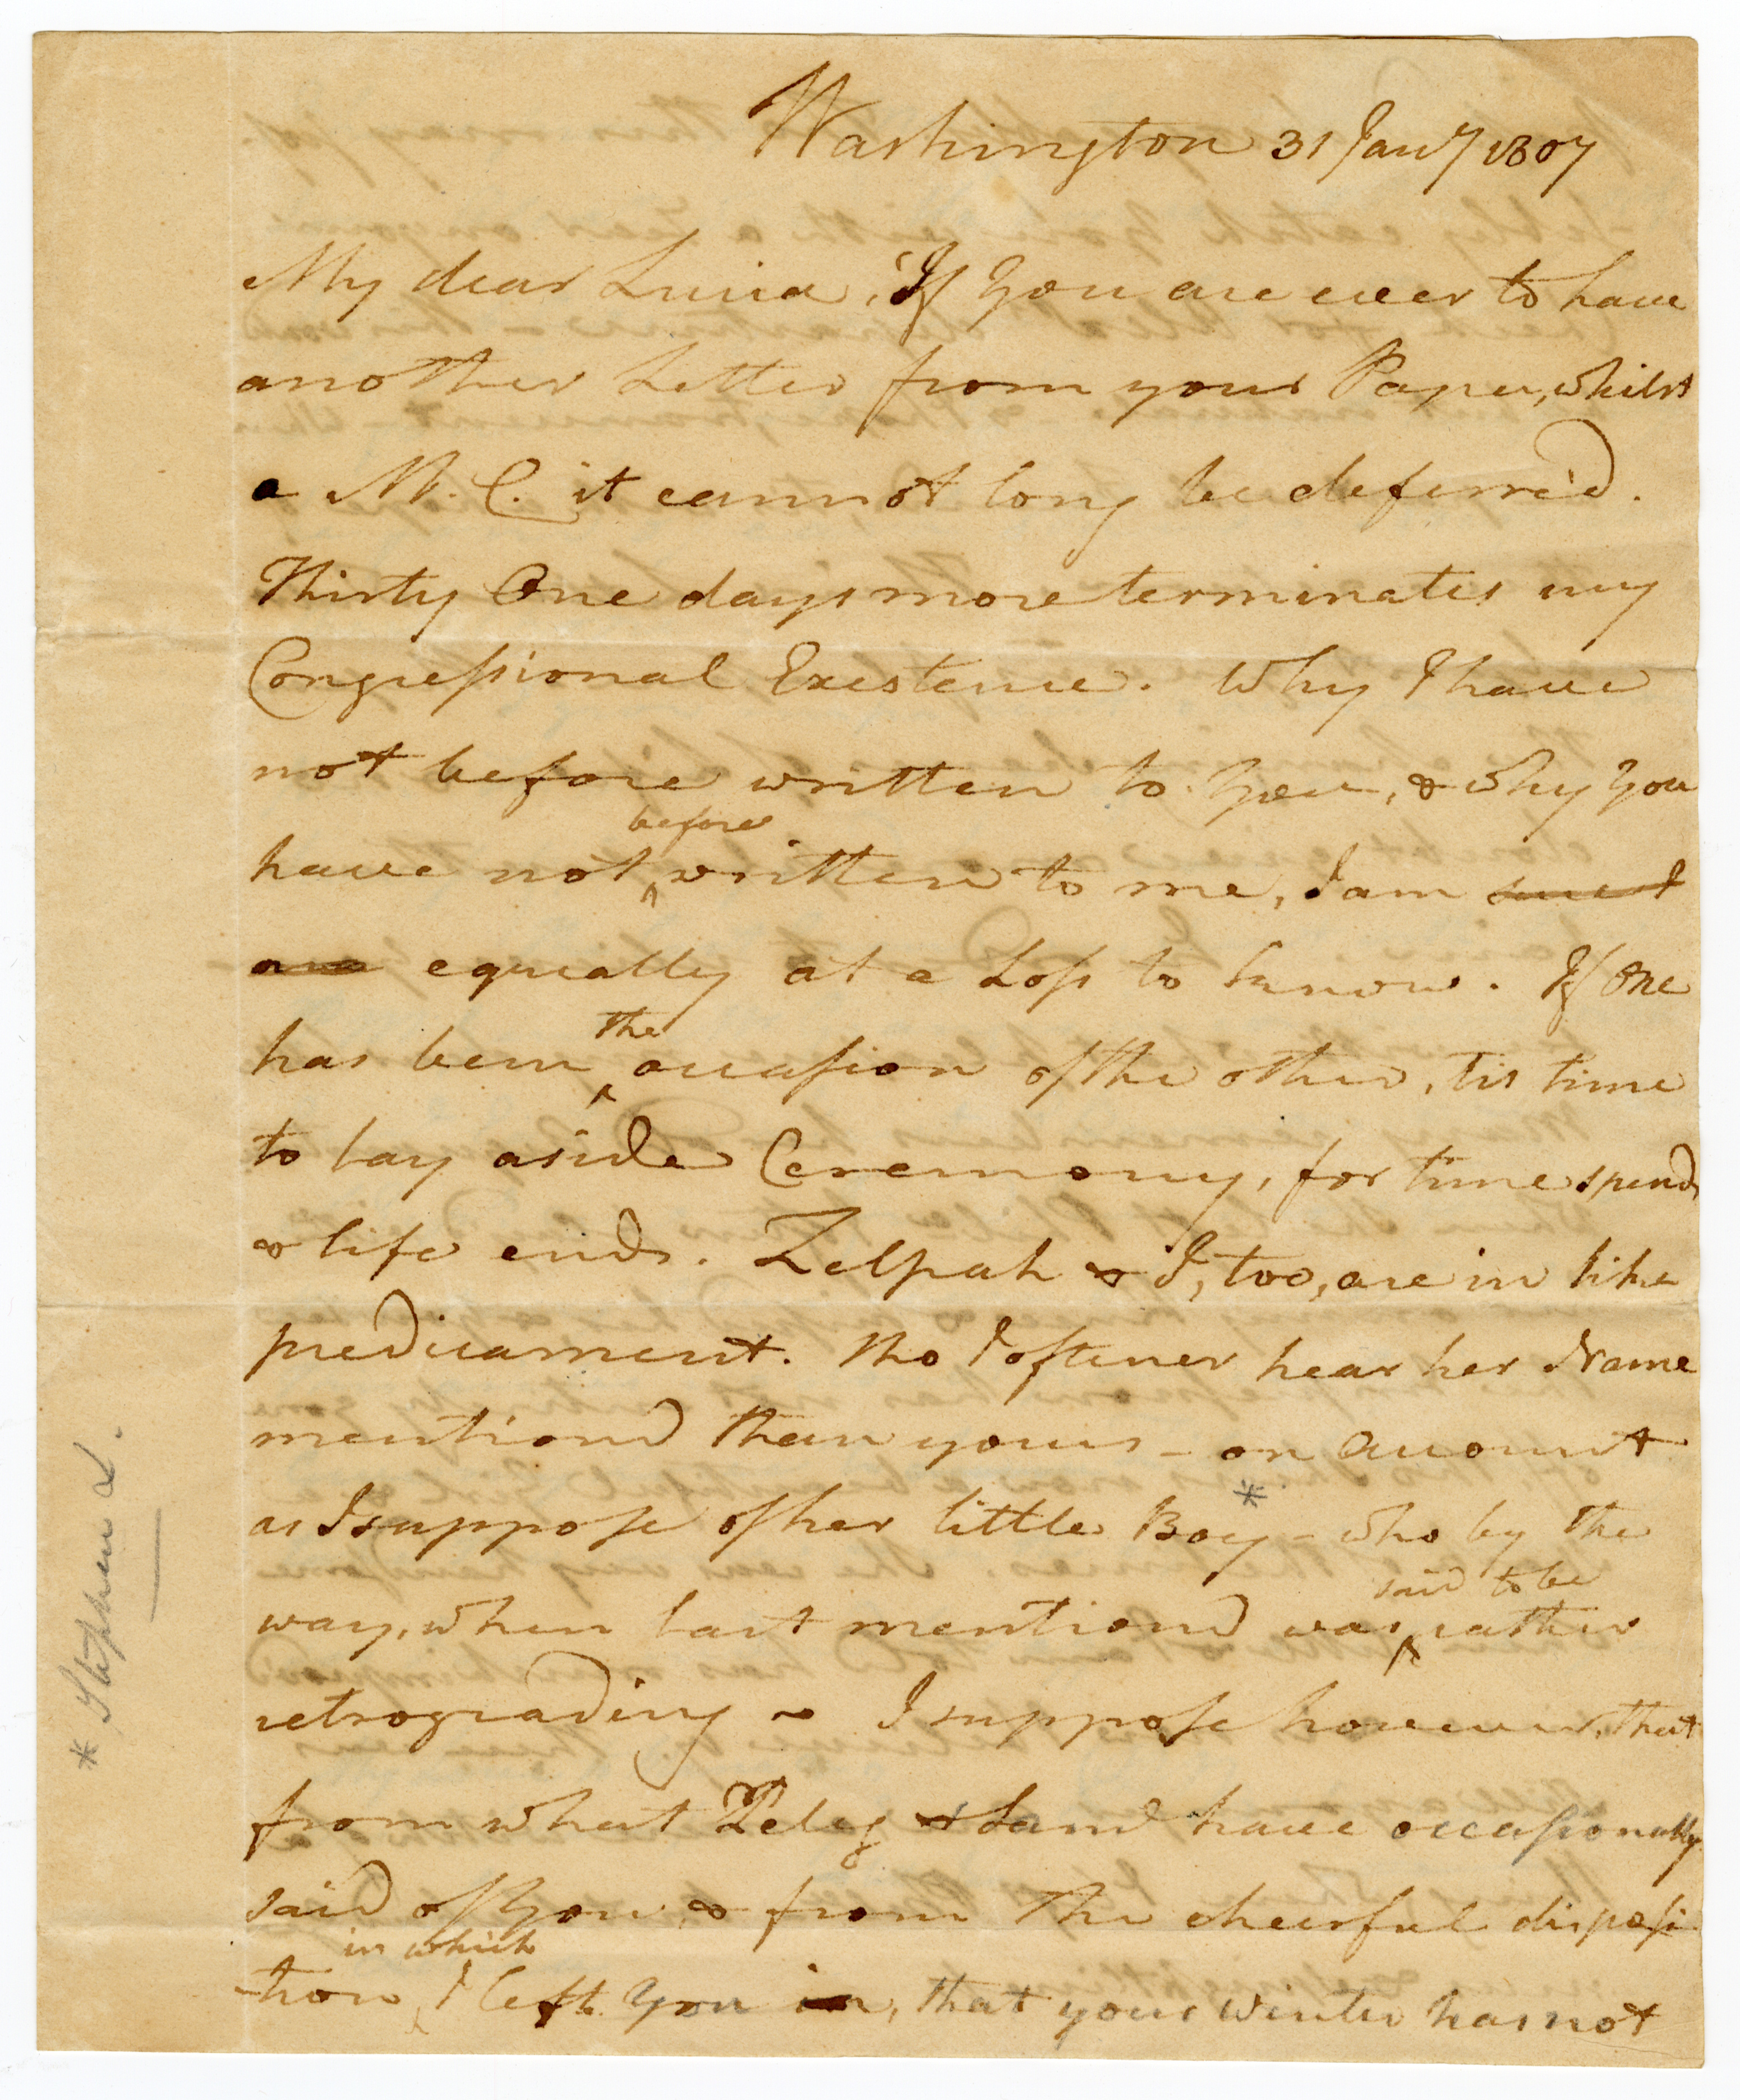 Washington 31 Jany 1807
My dear Lucia, If you are ever to have
another Letter from your Papa, whilst
a M. C. it cannot long be deferred.
Thirty One days more terminates my
Congressional Existence. Why I have
not before written to you, & why you
have not before written to me, I am
equally at a Loss to know. If one
has been the occasion of the other, tis time
to lay aside Ceremony, for time spends
& life ends. Zelpah & I, too, are in like
predicament. tho I oftener hear her Name
mentiond than yours - on account
as I suppose of her little Boy* - who by the
way, when last mentiond was said to be rather
retrograding - I suppose however, that
from what Peleg & Land have occasionally
said of you, & from the chearful disposi
-tion in which I left you in, that your winter has not
* Stephen L.